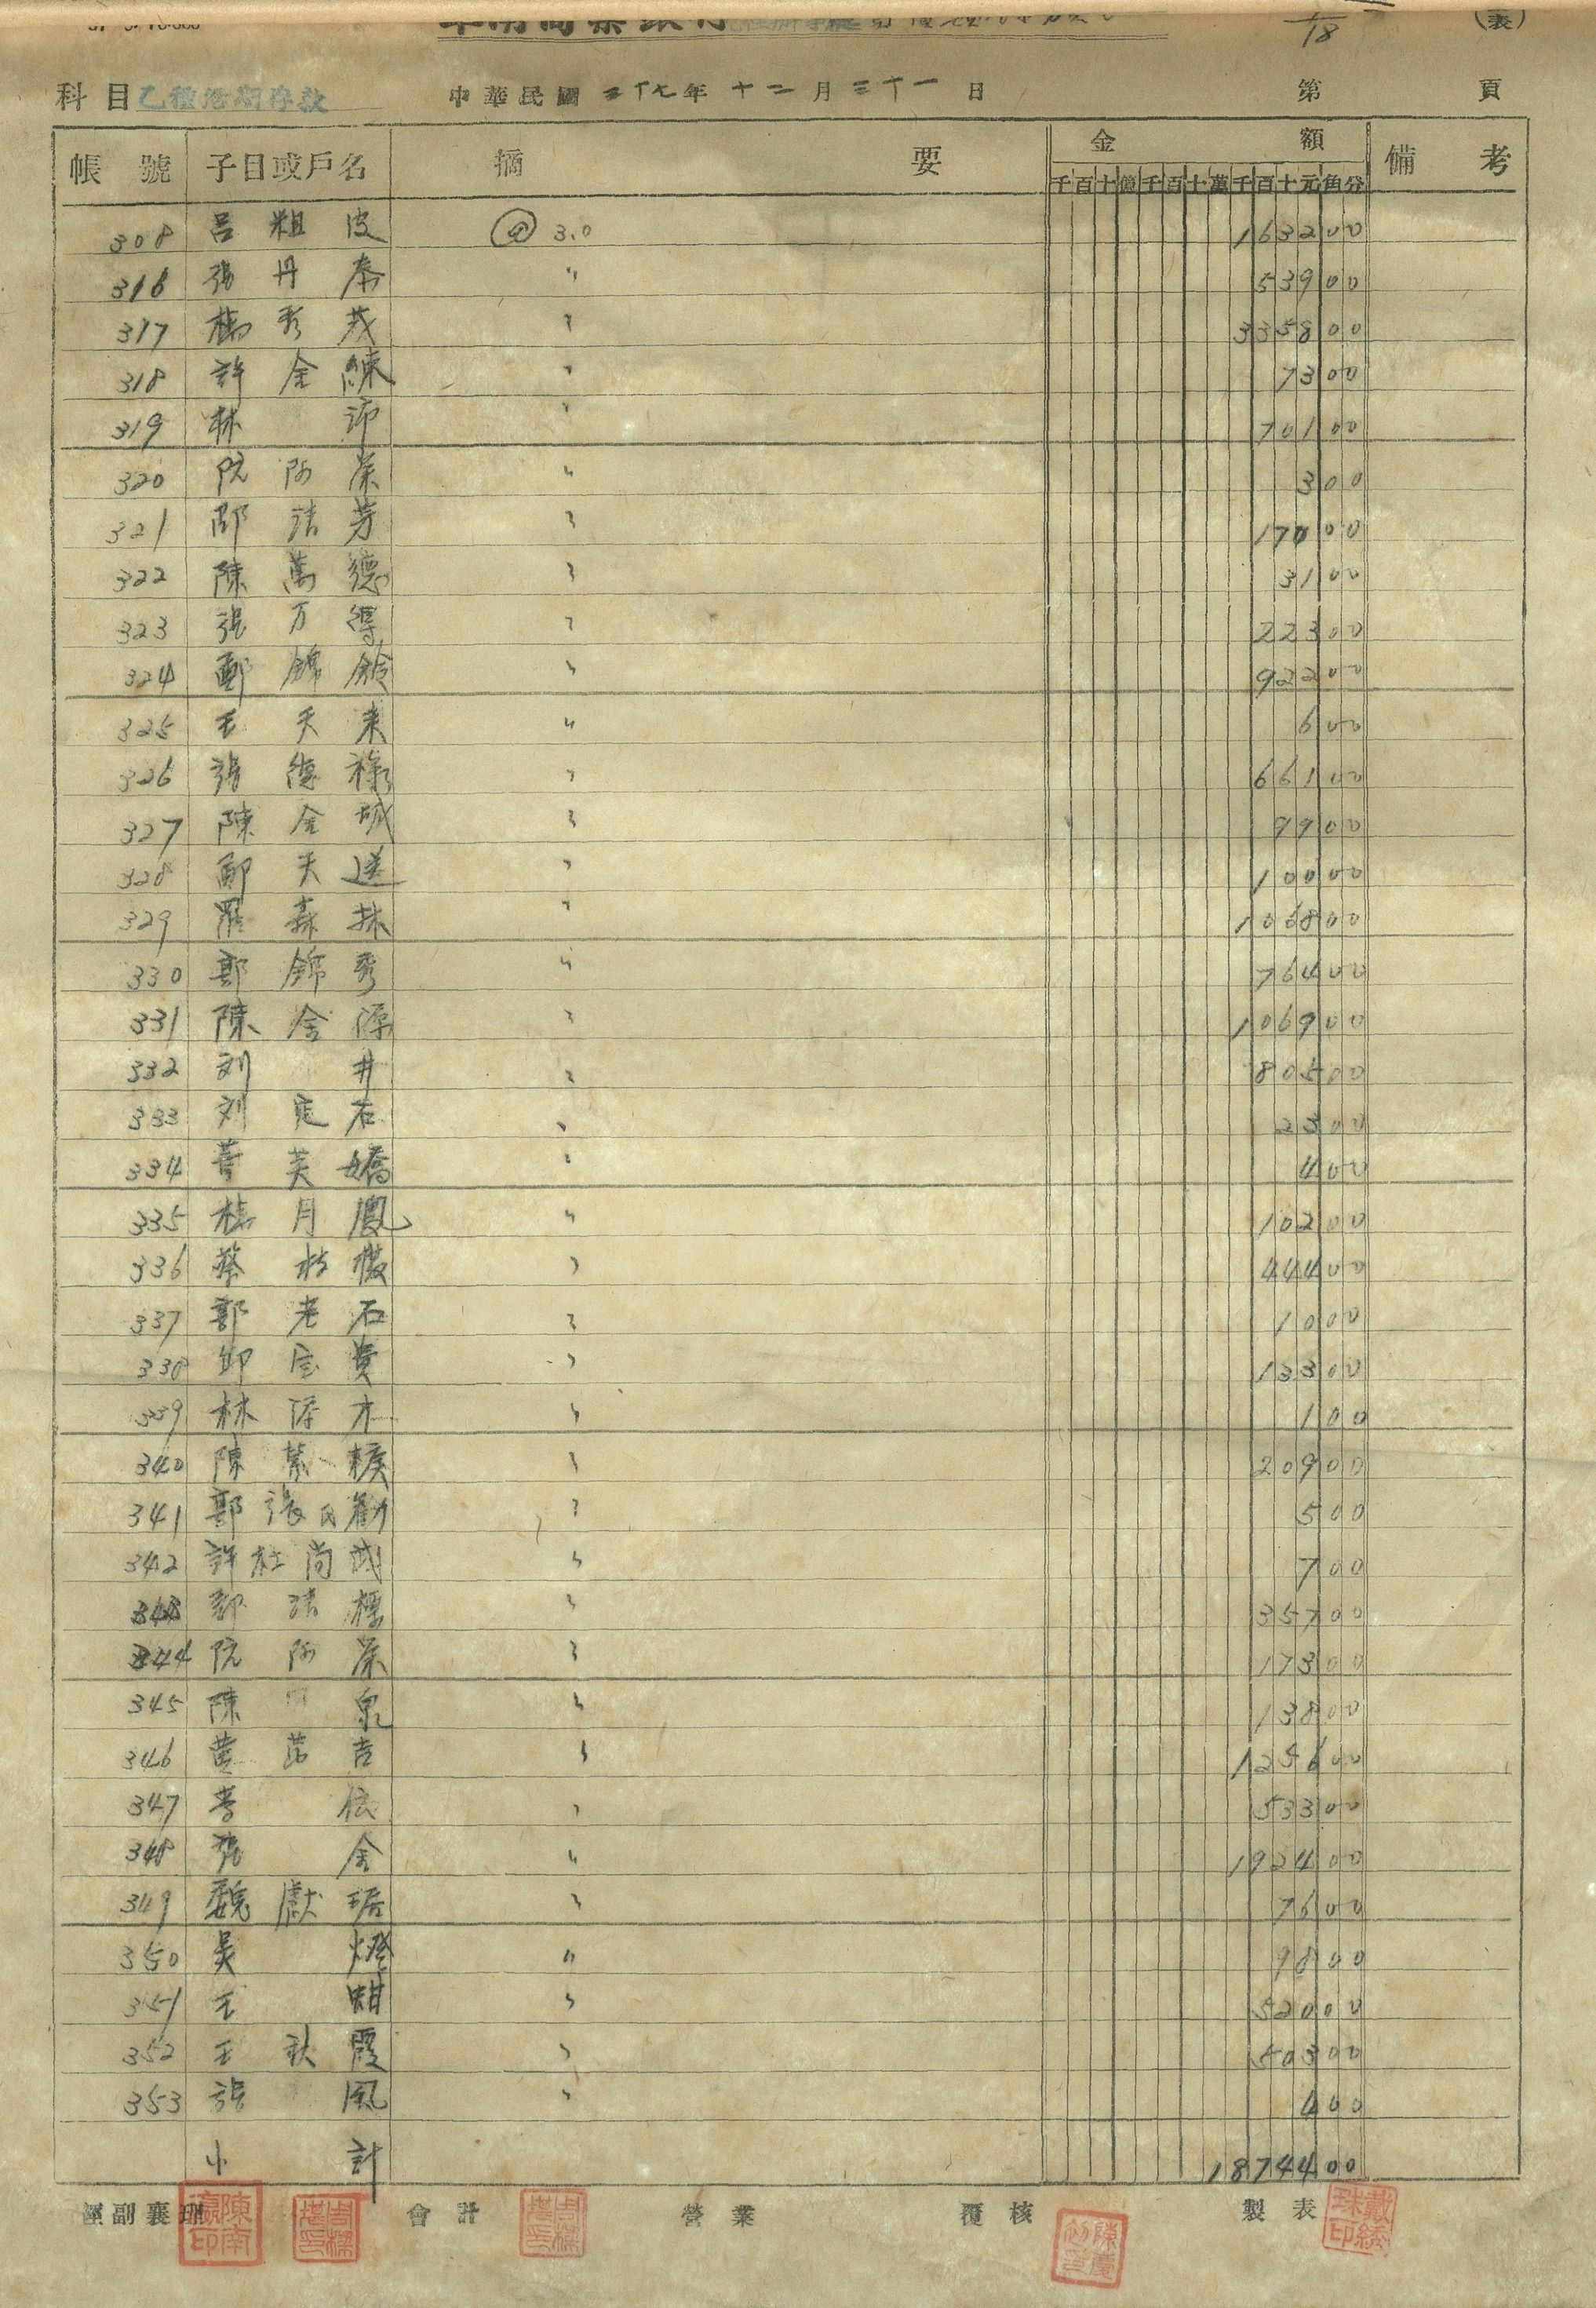 華南商業銀行
18
(表)
科目 乙種活期存款 中華民國 三十七年 十二月 三十一日 第 頁
帳號 子目或戶名 摘要 金額 備考
千百十億千百十萬千百十元角分
308 呂粗皮 @ 3.0 1632 00
316 張丹泰 〃 539 00
317 楊秀茂 〃 3358 00
318 許金練 〃 73 00
319 林 〃 701 00
320 阮阿榮 〃 3 00
321 清芳 〃 170 00
322 陳萬德 〃 31 00
323 張万得 〃 223 00
324 鄭錦鈴 〃 922 00
325 王天來 〃 6 00
326 張德祿 〃 661 00
327 陳金城 〃 99 00
328 鄭天送 〃 100 00
329 羅森林 〃 1068 00
330 郭錦秀 〃 764 00
331 陳金源 〃 1069 00
332 刘井 〃 805 00
333 刘定石 〃 23 00
334 黃芙嬌 〃 4 00
335 楊月鳳 〃 102 00
336 蔡 〃 444 00
337 郭老石 〃 10 00
338 貴 〃 133 00
339 林添木 〃 1 00
340 陳 〃 209 00
341 郭張氏勸 〃 5 00
342 許杜尚 〃 7 00
343 清標 〃 357 00
344 阮阿榮 〃 173 00
345 陳 泉 〃 138 00
346 黃 吉 〃 1256 00
347 李 〃 533 00
348 張金 〃 1924 00
349 魏獻琚 〃 76 00
350 吳燈 〃 98 00
351 王蚶 〃 520 00
352 王秋霞 〃 503 00
353 張風 〃 4 00
小計 18744 00
經副襄理 會計 營業 覆核 製表
陳南印
戴綉珠印